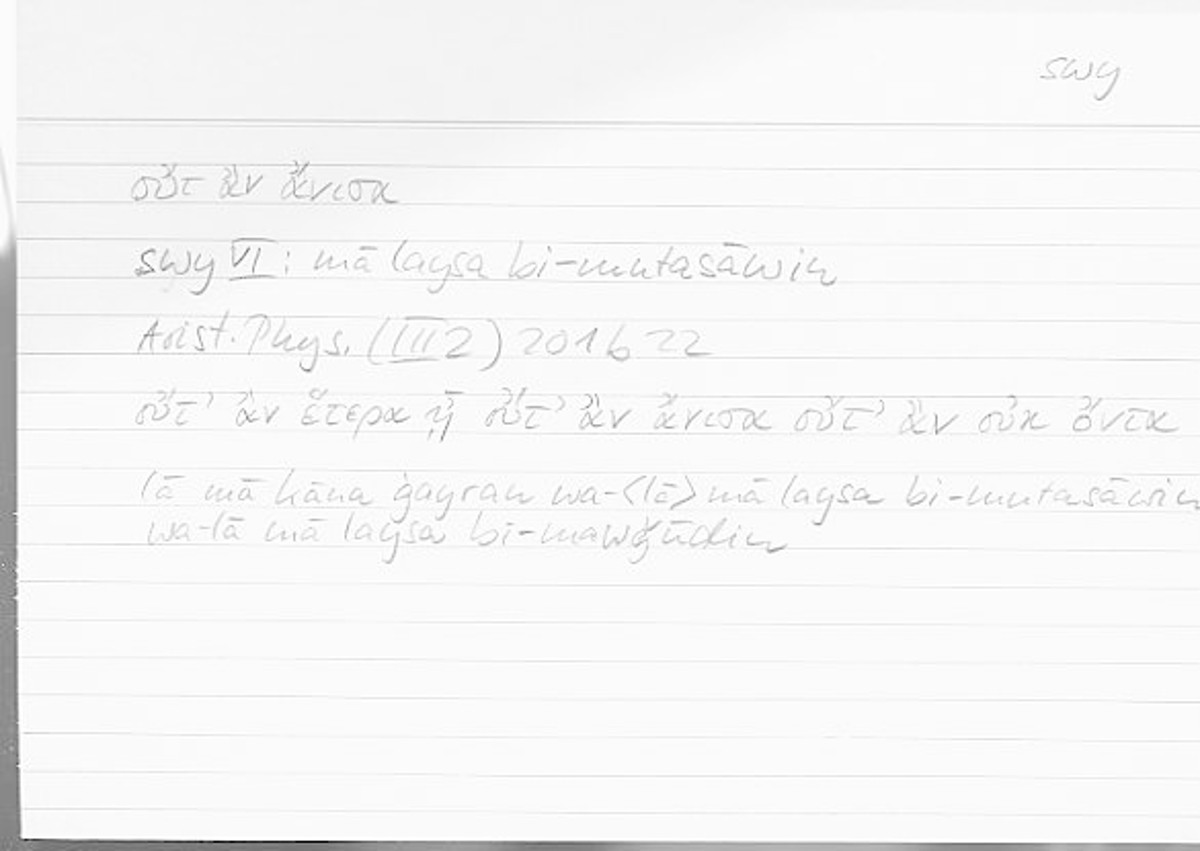 swy
οὔτ ἂν ἄνισα
swy VI: mā laysa bi-mutasāwin
Arist. Phys. (III 2) 201b 22
οὔτ’ ἂν ἕτερα ᾖ οὔτ’ ἂν ἄνισα οὔτ’ ἂν οὐκ ὄντα
lā mā kāna ġayran wa-<lā> mā laysa bi-mutasāwin
wa-lā mā laysa bi-mawǧūdin